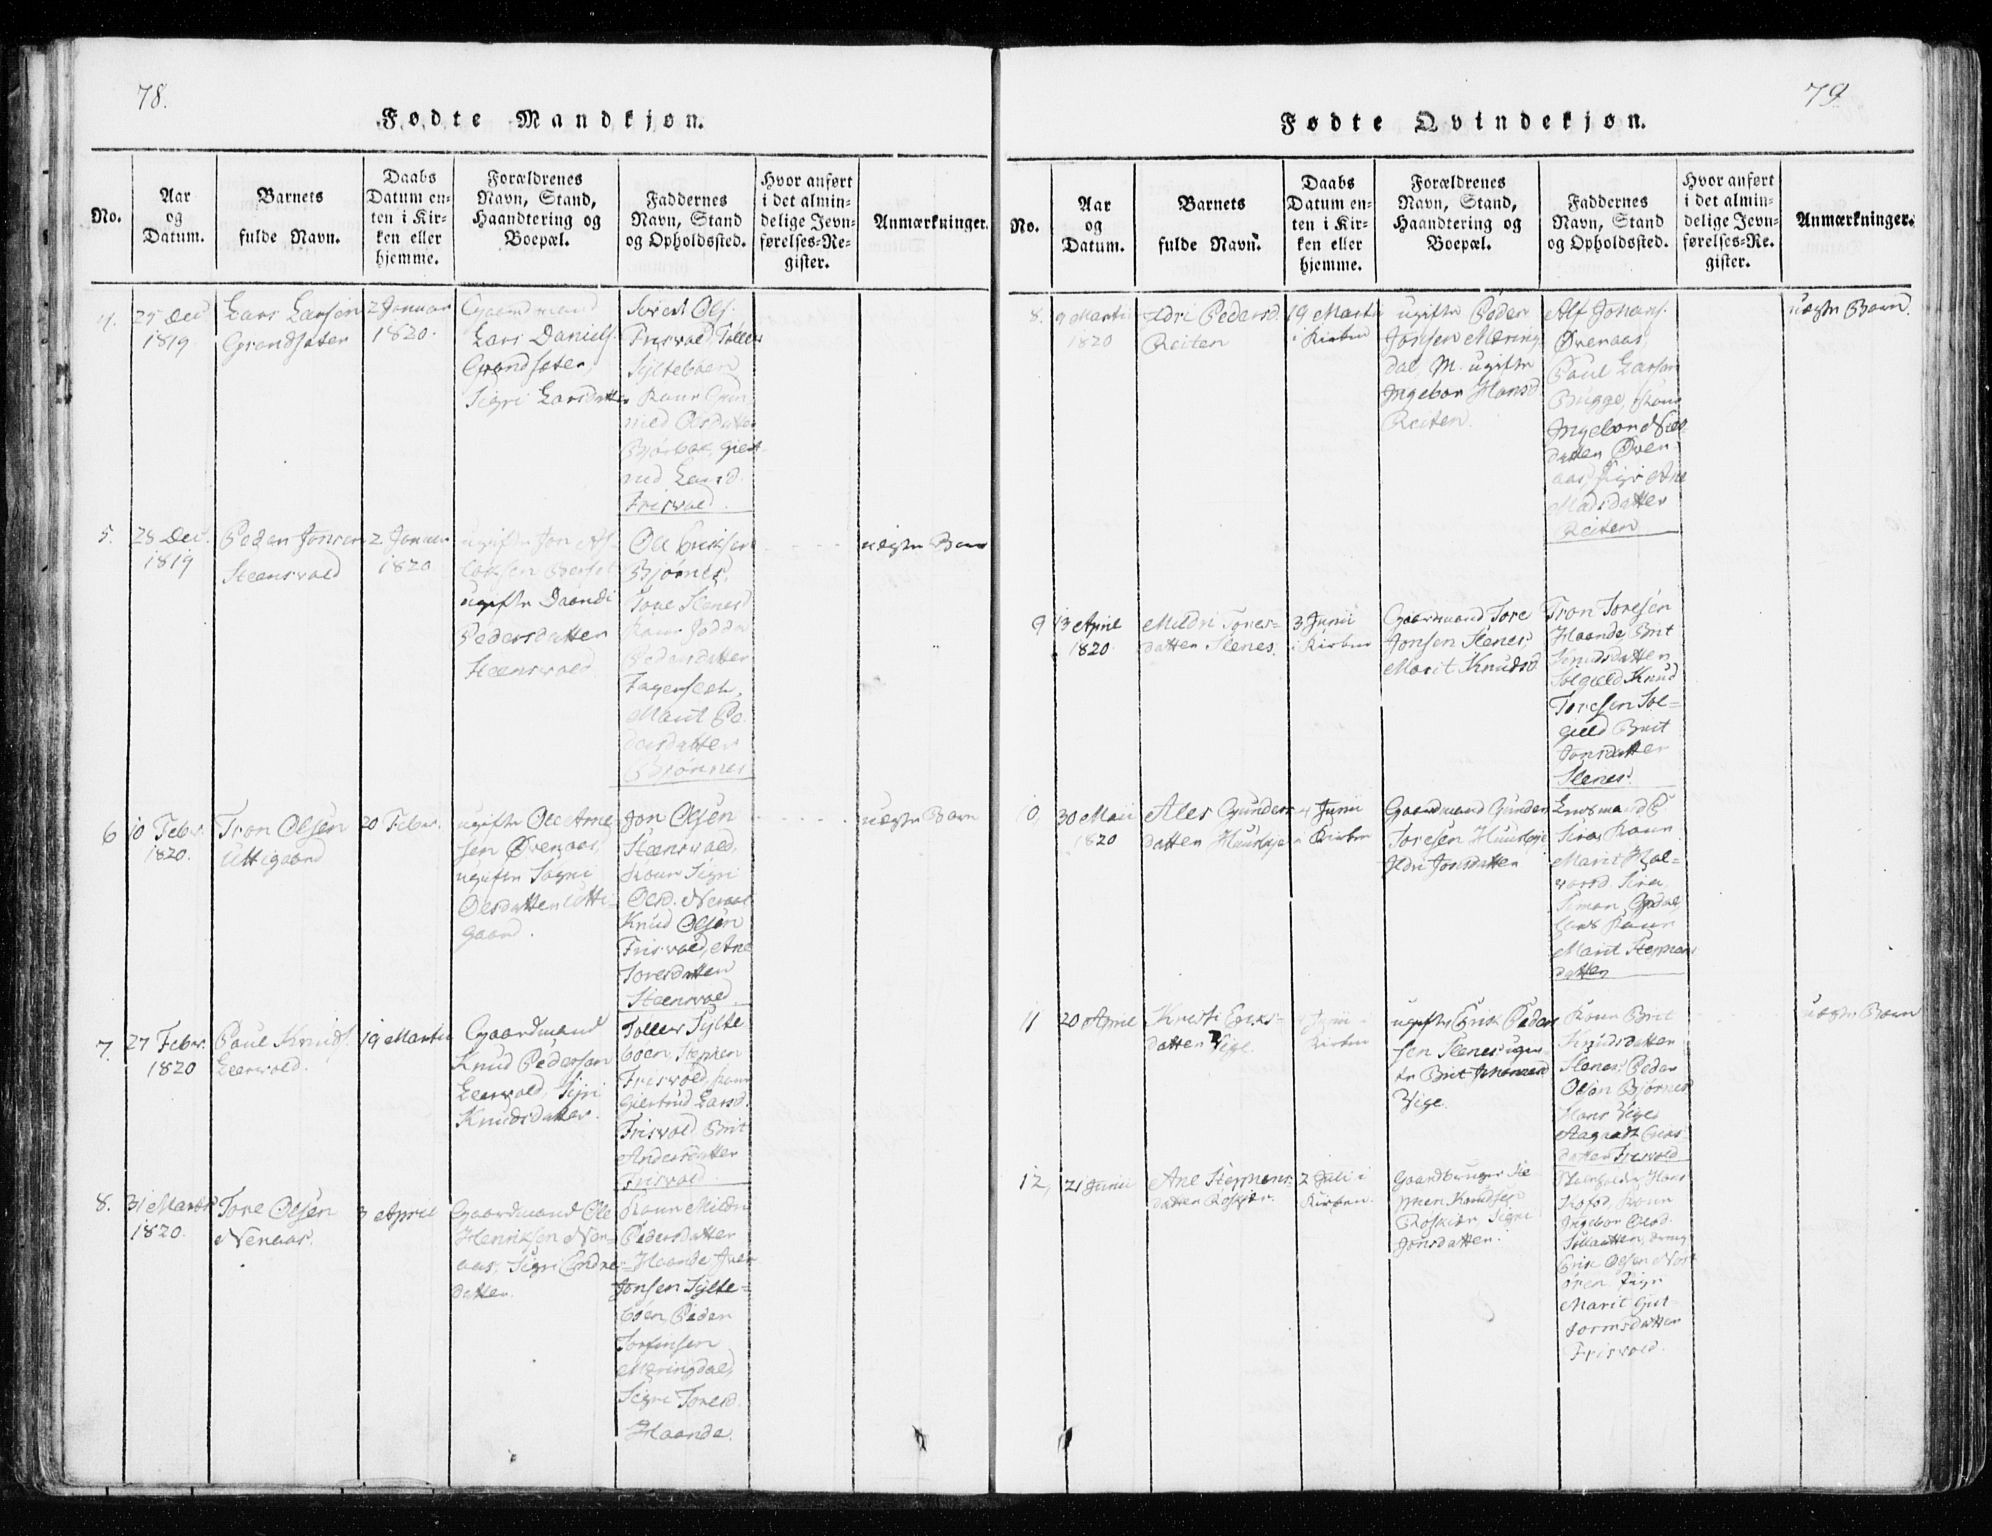 78.
Fødte Mandkjøn.
No.
Aar
og
Datum.
Barnets
fulde Navn.
Daabs
Datum en-
ten i Kir-
ken eller
hjemme.
Forældrenes
Navn, Stand,
Haandtering og
Boepæl.
Faddernes
Navn, Stand
og Opholdssted.
Hvor anført
i det almin-
delige Jevn-
førelses-Re-
gister.
Anmærkninger.
4.
25 Dec
1819
Lars Larsen
Grandsæter
2 Januar
1820.
Gaardmand
Lars Daniels.
Grandsæter,
Sigri Larsdatter
Sivert Ols.
Frisvold, Toller
Syltebøen
Kone
Olsdatter
Larsd.
Frisvold.
5.
28 Dec.
1819
Peder Jonsen
Steensvold
2 Januar
1820
ugifte Jon
ugifte
Pedersdatter
Steensvold
Ole Eriksen
Bjørnes,
Tore Slenes
Kone
Pedersdatter
Marit Pe-
dersdatter
Bjørnnes
uægte Barn
6
10 Febr.
1820.
Tron Olsen
Uttigaard
20 Febr.
ugifte Ole Arne
sen Øvenaas,
ugifte Sigri
Olsdatter Utti-
gaard.
Jon Olsen
Steensvold,
Kone Sigri
Olsd. Neraas
Knud Olsen
Frisvold, Ane
Toresdatter
Steensvold.
uægte Barn
7.
27 Febr.
1820
Paul Knuds.
Leervold.
19 Martii
Gaardmand
Knud Pedersen
Leervold, Sigri
Knudsdatter.
Toller Sylte
bøen, Steffen
Frisvold, Kone
Giertrud Larsd.
Frisvold Brit
Andersdatter
Frisvold.
8.
31 Martii
1820.
Tore Olsen
Neraas.
3 April
Gaardmand Ole
Henriksen Ner-
aas, Sigri Endre-
datter.
Kone Mildri
Pedersdatter
Haande Iver
Jonsen Sylte-
bøen, Peder
Torfinsen
Meringdal,
Sigri Toresd.
Haande.
79.
Fødte Qvindekjøn.
No.
Aar
og
Datum.
Barnets
fulde Navn.
Daabs
Datum en-
ten i Kir-
ken eller
hjemme.
Forældrenes
Navn, Stand,
Haandtering og
Boepæl.
Faddernes
Navn, Stand
og Opholdssted.
Hvor anført
i det almin-
delige Jevn-
førelses-Re-
gister.
Anmærkninger.
8.
9 Martii
1820
Ildri Pedersd.
Reiten
19 Martii
i Kirken
ugifte Peder
Jonsen Mæring
dal M. ugifte
Ingebor Hansd.
Reiten.
Alf Johans.
Øvenaas
Paul Larsen
Bugge, Kone
Ingebor Niels-
datter Øven-
aas, Pige Ane
Madsdatter
Reiten
uægte Barn.
9
13 April
1820.
Mildri Tores-
datter Slenes.
3 Junii
i Kirken
Gaardmand Tore
Jonsen Slenes,
Marit Knudsd.
Tron Toresen
Haande Brit
Knudsdatter
Solgield Knud
Toresen Sol-
gield Brit
Jonsdatter
Slenes.
10,
30 Maii
1820
Ales Gunders-
datter
4 Junii
i Kirken
Gaardmand Gunder
Toresen
Ildri Jonsdatter
Lensmand
Sira, Kone
Marit Hal-
vorsd. Sira,
Simon
Kone
Marit Steffens
datter
11
20 April
Kristi Eriks-
datter Vige.
Junii i
Kirken
ugifte Erik Peder
sen Slenes ugif-
te Brit
Vige.
Kone Brit
Knudsdatter
Slenes, Peder
Olsen Bjørnes
Hans Vige,
Aagaadt Eriks-
datter Frisvold
uægte Barn
12,
21 Junii
Ane Steffens-
datter Røskier.
2 Juli i
Kirken.
Gaardbruger Ste
phen Knudsen
Røskier, Sigri
Jonsdatter.
Hans
Kone
Ingebor Olsd.
dreng
Erik Olsen Nord
øren, Pige
Marit Gut-
tormsdatter
Frisvold.